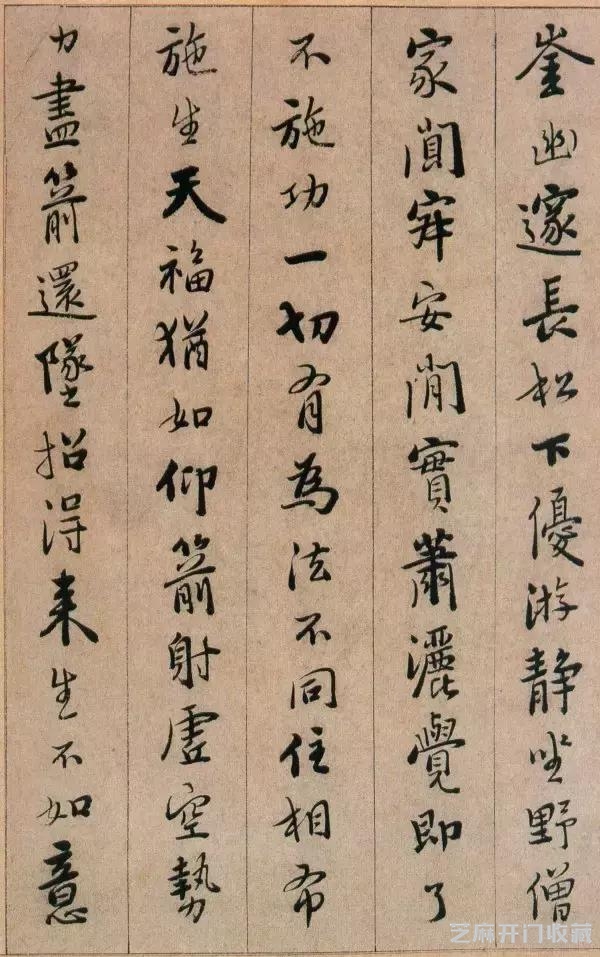 崟幽邃長松下優游静坐野僧
家闃寂安閒實蕭灑覺即了
不施功一切有為法不同住相布
施生天福猶如仰箭射虛空勢
力盡箭還墜招得来生不如意
芝麻开门收藏